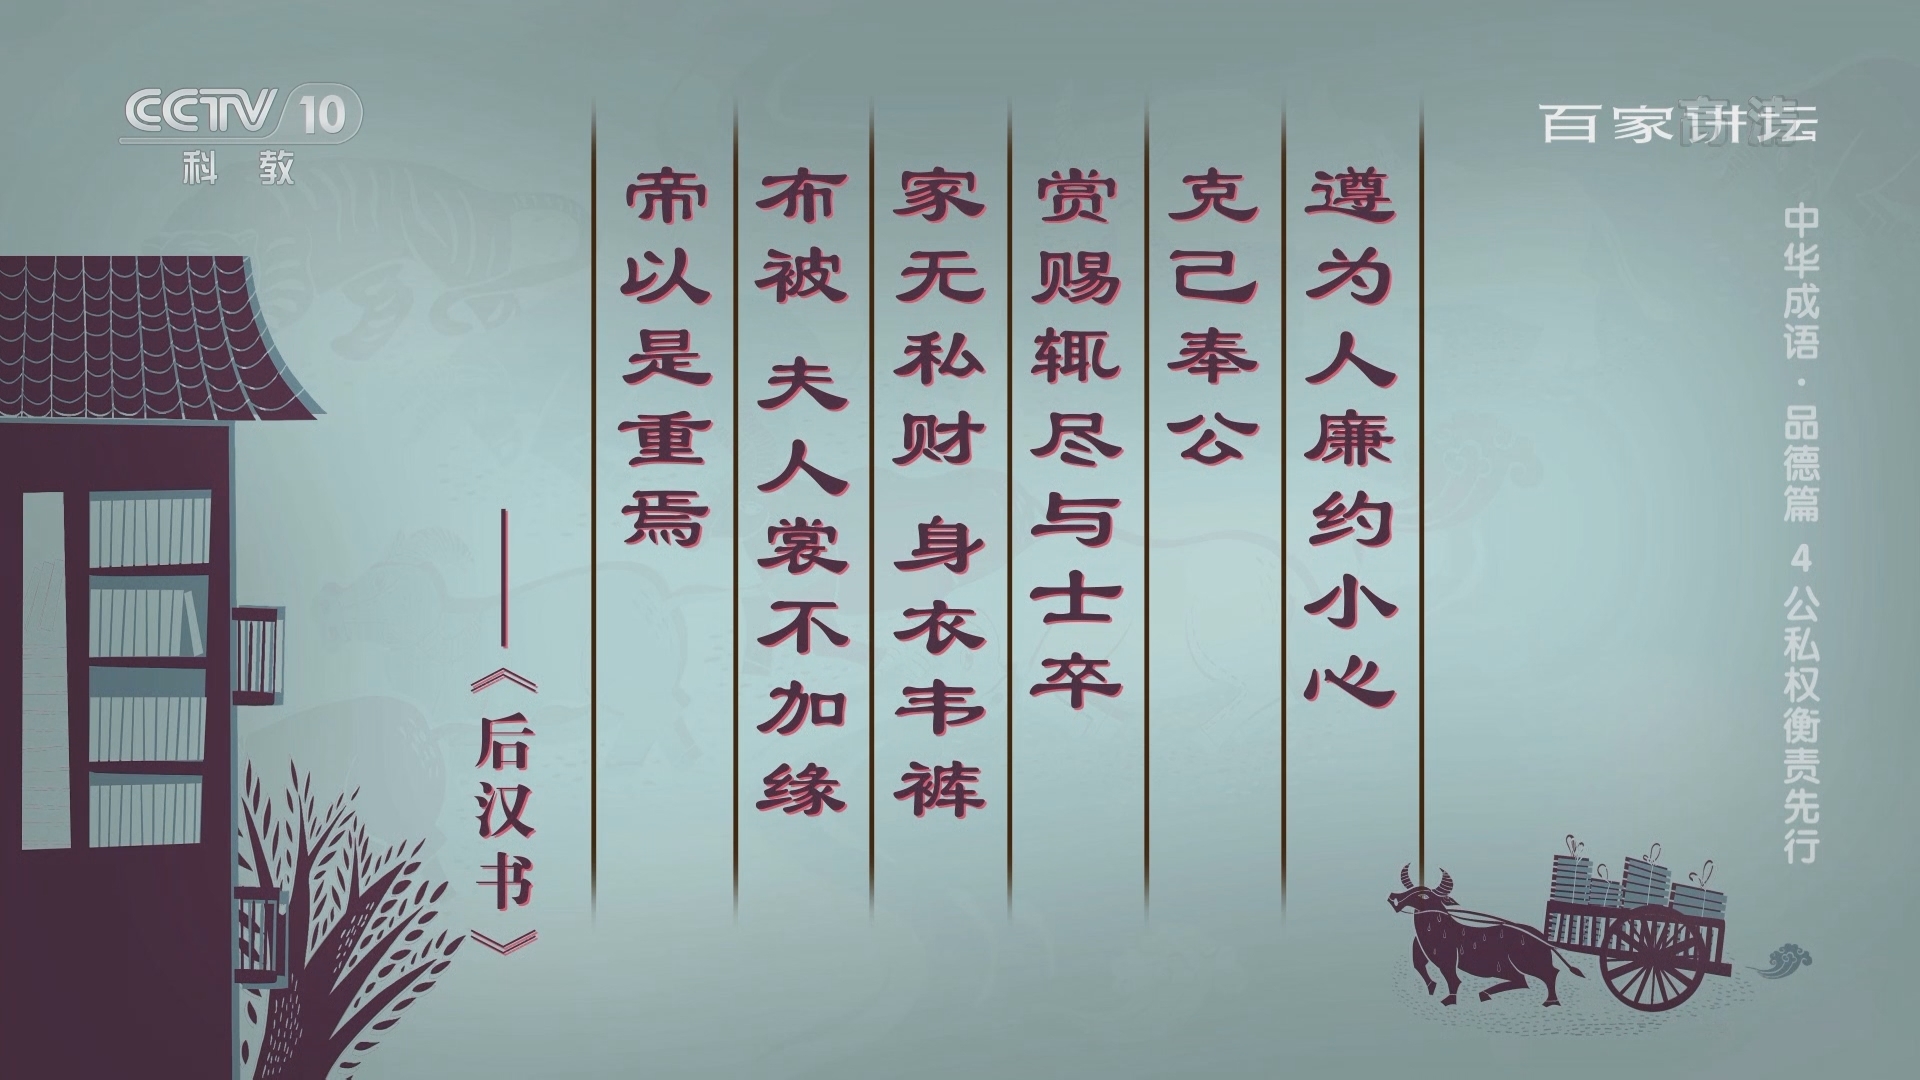 CCTV 10
科教
百家讲坛
高清
中华成语·品德篇 4 公私权衡责先行
遵为人廉约小心
克己奉公
赏赐辄尽与士卒
家无私财 身衣韦裤
布被 夫人裳不加缘
帝以是重焉
——《后汉书》